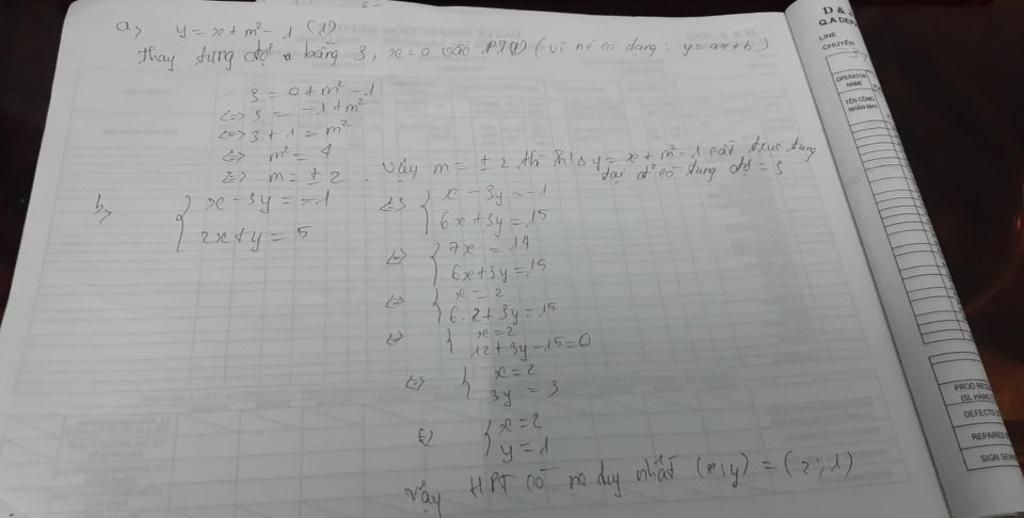 a> y = x + m² - 1 (1)
Thay tung độ bằng 3, x = 0 vào PT(1) (vì nó có dạng: y = ax + b)
3 = 0 + m² - 1
<=> 3 = -1 + m²
<=> 3 + 1 = m²
<=> m² = 4
<=> m = ± 2. Vậy m = ± 2 thì h/s y = x + m² - 1 cắt trục tung
tại đ² có tung độ = 3
b> { x - 3y = -1
2x + y = 5
<=> { x - 3y = -1
6x + 3y = 15
<=> { 7x = 14
6x + 3y = 15
<=> { x = 2
6.2 + 3y = 15
<=> { x = 2
12 + 3y - 15 = 0
<=> { x = 2
3y = 3
<=> { x = 2
y = 1
Vậy HPT có no duy nhất (x; y) = (2; 1)
D &
Q.A DEP
LINE
CHUYỀN
OPERATOR
NAME
TÊN CÔNG
NHÂN MAY
PROD REC
(SL HÀNG
DEFECTS
REPAIRED
SIGN